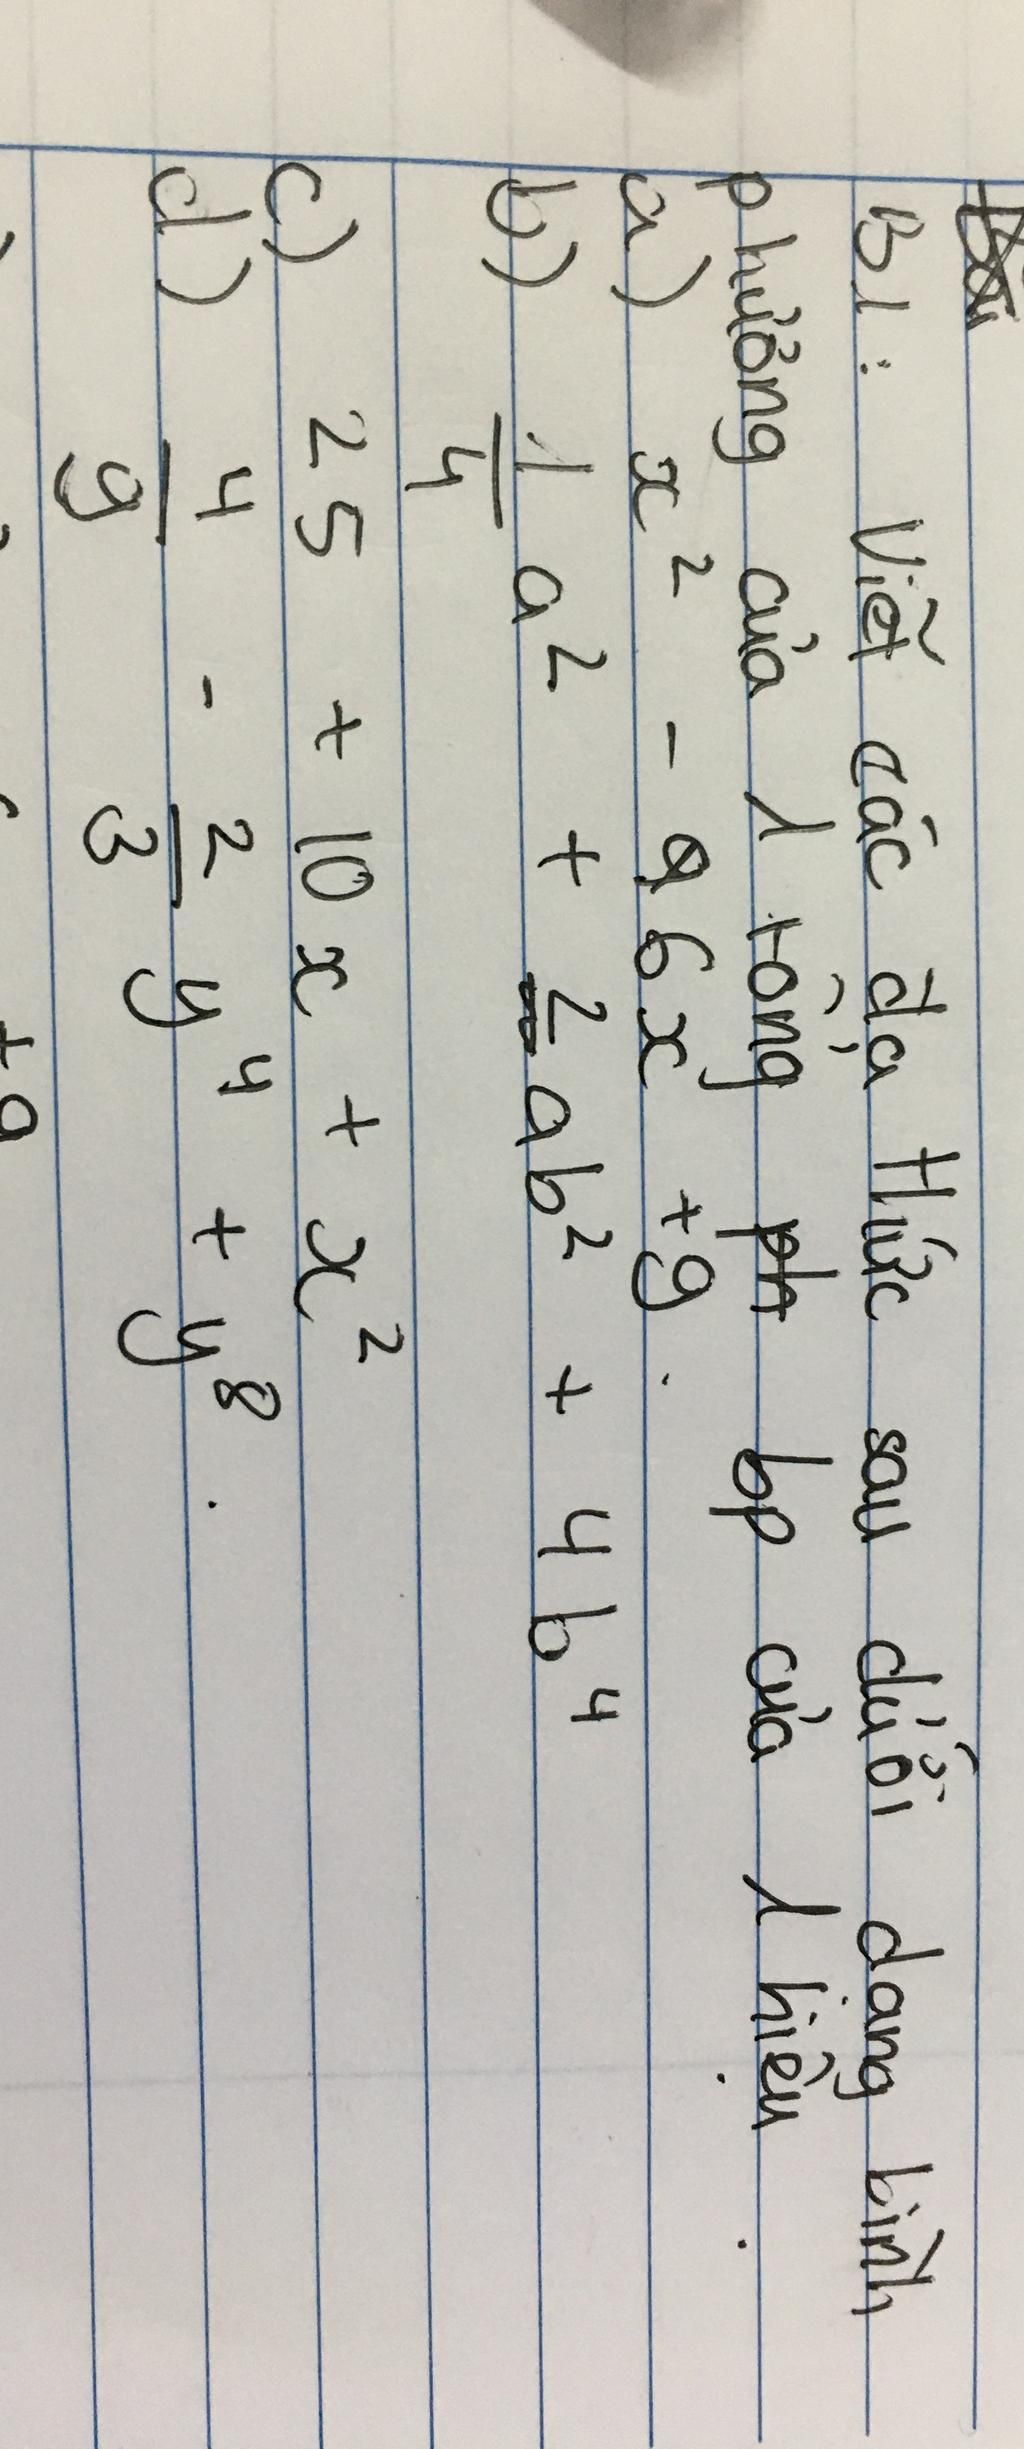 B1: Viết các đa thức sau dưới dạng bình
phương của 1 tổng bp của 1 hiệu.
a) x² - 6x + 9.
b) 1/4 a² + 2ab² + 4b⁴
c) 25 + 10x + x²
d) 4/9 - 2/3 y⁴ + y⁸.